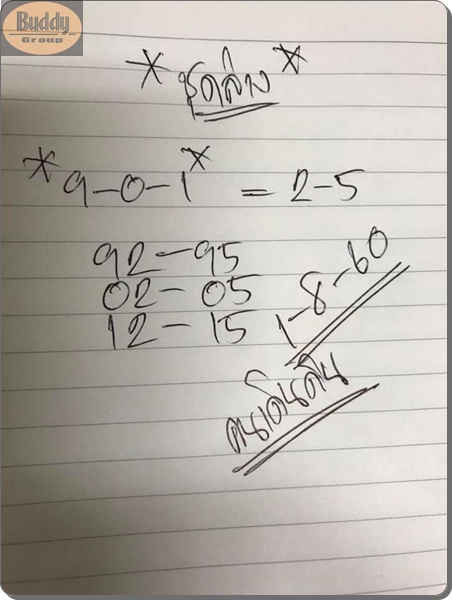 Buddy
Group
*ชุดล่าง*
*9-0-1* = 2-5
92-95
02-05
12-15
1-8-60
คนเดินดิน